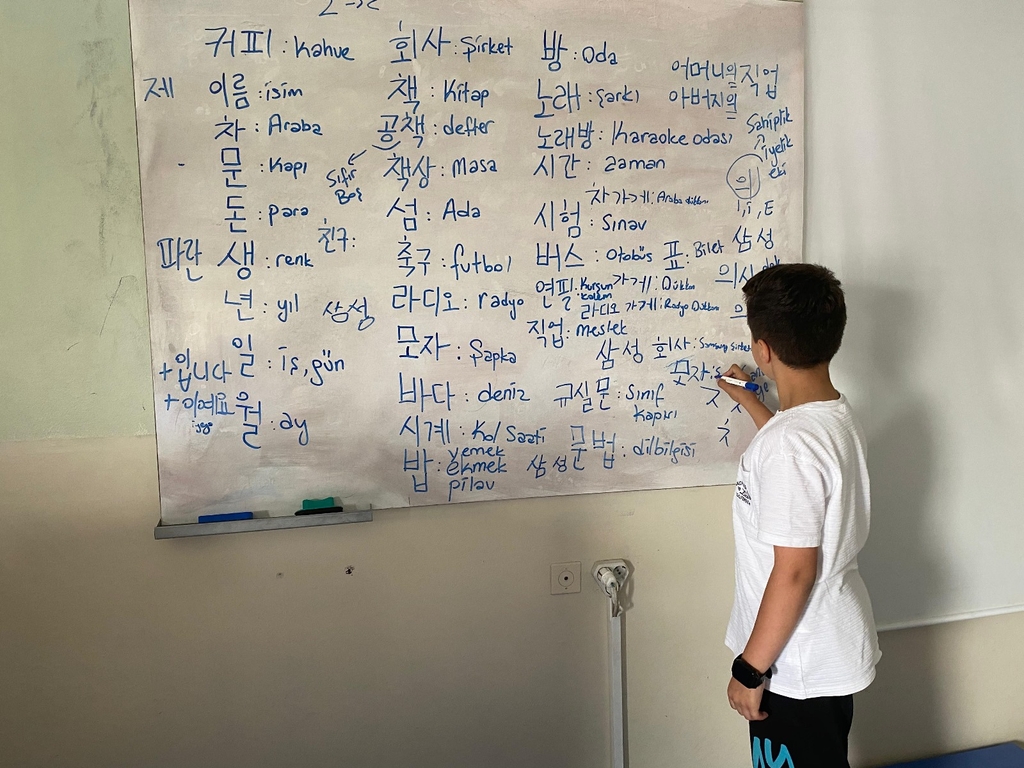 커피 : kahve
제 이름 : isim
차 : Araba
문 : kapı
돈 : para
파란 생 : renk
년 : yıl
삼성
일 : iş, gün
+ 입니다
+ 이예요
월 : ay
친구 :
회사 : Şirket
책 : Kitap
공책 : defter
Sıfır
Boş
책상 : masa
섬 : Ada
축구 : futbol
라디오 : radyo
모자 : Şapka
바다 : deniz
시계 : Kol Saati
밥 : yemek
ekmek
pilav
방 : Oda
노래 : şarkı
노래방 : Karaoke odası
시간 : zaman
차 가게 : Araba dükkanı
시험 : Sınav
버스 : Otobüs
표 : Bilet
연필 : Kurşun
kalem
가게 : Dükkan
라디오 가게 : Radyo Dükkanı
직업 : meslek
삼성 회사 : Samsung Şirketi
규실 문 : Sınıf
kapısı
삼성
문법 : dilbilgisi
어머니의 직업
아버지의
Sahiplik
iyelik
eki
의
I, i, E
삼성
의사
모자 :